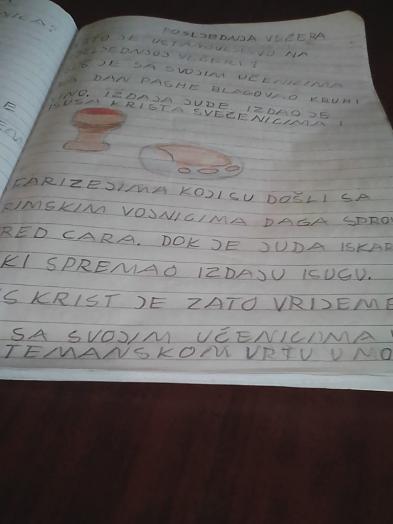 POSLJEDNJA VEČERA
ŠTO JE USTANOVLJENO NA
POSLJEDNJOJ VEČERI?
JE SA SVOJIM UČENICIMA
DAN PASHE BLAGOVAO KRUH I
VINO. IZDAJA JUDE. IZDAO JE
ISUSA KRISTA SVEĆENICIMA I
FARIZEJIMA KOJI SU DOŠLI SA
RIMSKIM VOJNICIMA DAGA SPROV
RED CARA. DOK JE JUDA ISKAR
KI SPREMAO IZDAJU ISUSU.
S KRIST JE ZATO VRIJEME
SA SVOJIM UČENICIMA U
TEMANSKOM VRTU U MO